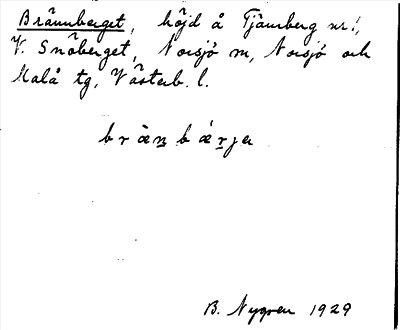 Brännberget, höjd å Tjämberg nr 1,
V. Snöberget, Norsjö m, Norsjö och
Malå tg, Västerb. l.
brän bärja
B. Nygren 1929